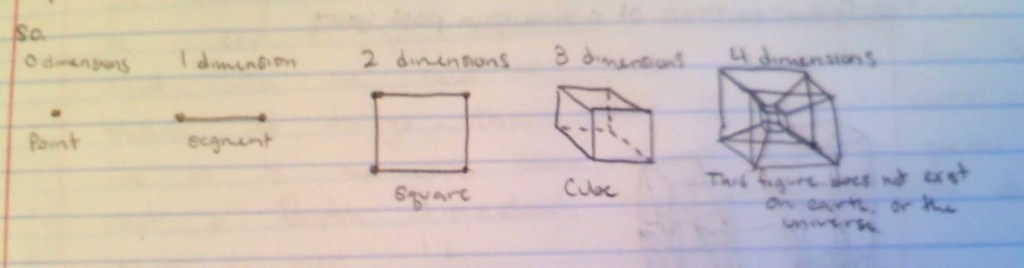 So.
0 dimensions 1 dimension 2 dimensions 3 dimensions 4 dimensions
Point segment square Cube This figure does not exist
on earth, or the
universe.